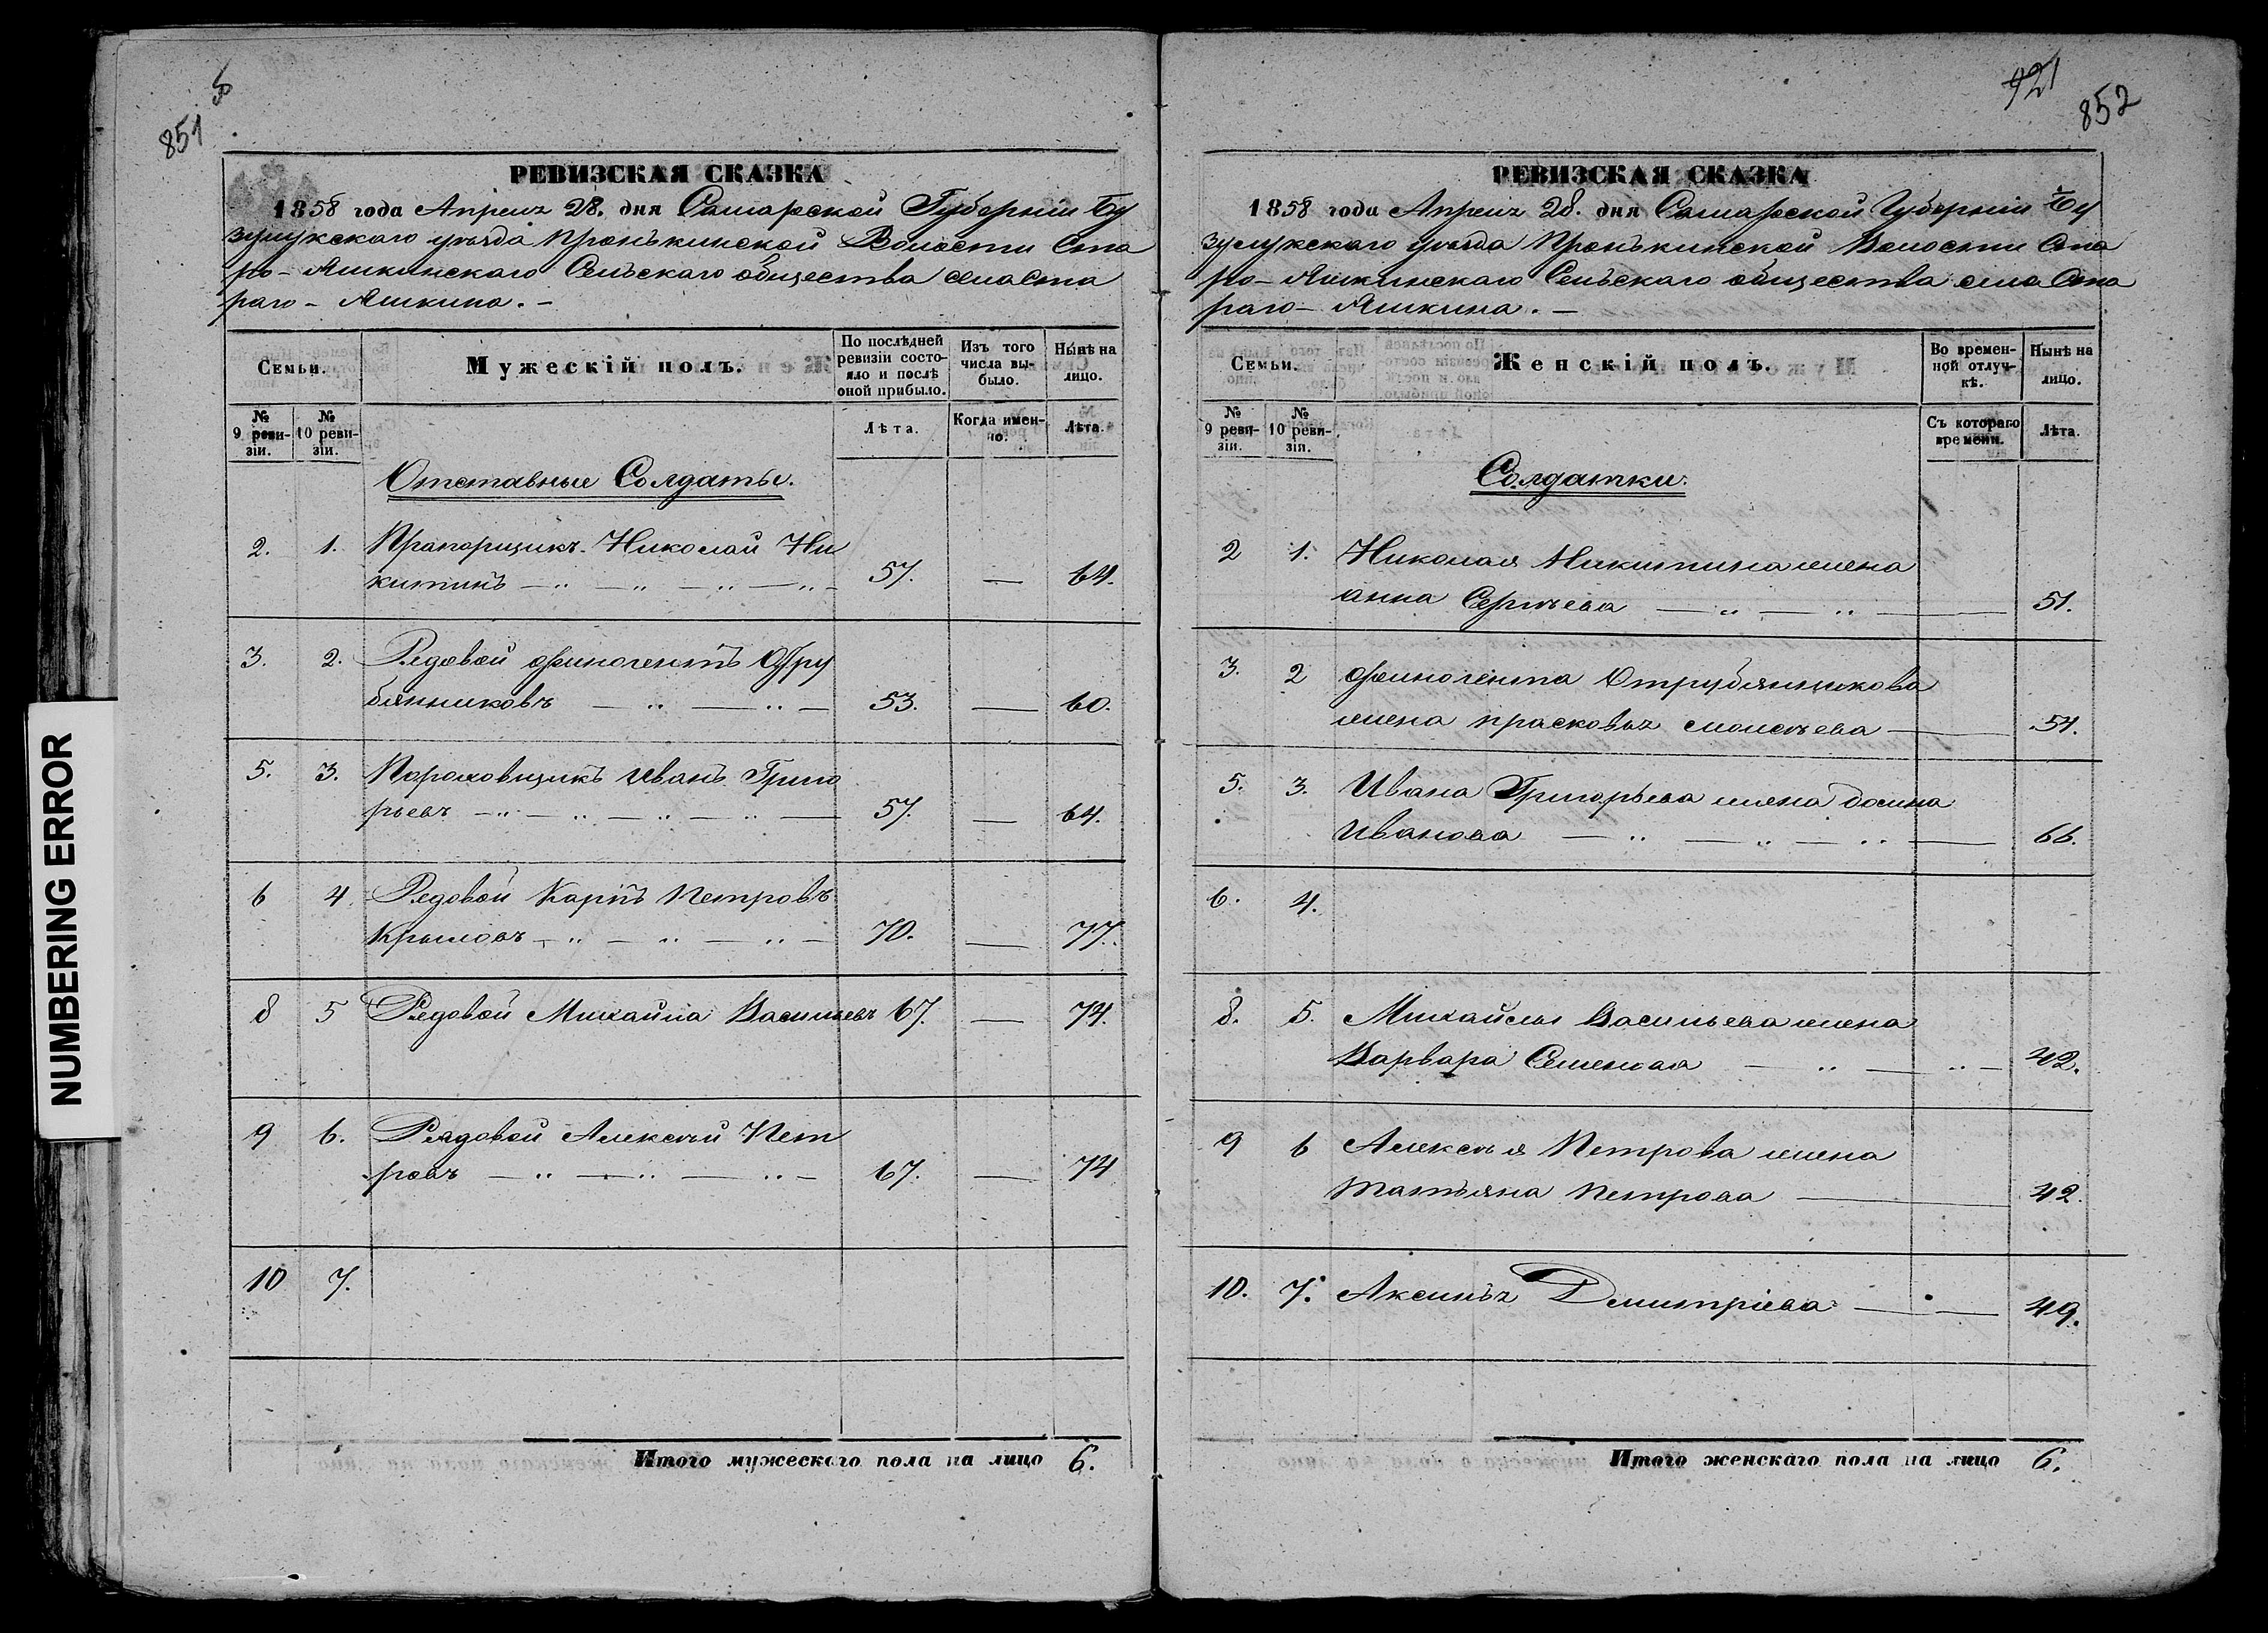 851
NUMBERING ERROR
РЕВИЗСКАЯ СКАЗКА
1858 года Апреля 28. дня Самарской Губерніи Бу
зулукскаго уѣзда Пронькинской Волости Ста
ро-Яшкинскаго Сельскаго общества села Ста
раго-Яшкина.-
Семьи.
Мужескій полъ.
По послѣдней ревизіи состояло и послѣ оной прибыло.
Изъ того числа выбыло.
Нынѣ на лицо.
№ 9 ревизіи.
№ 10 ревизіи.
Лѣта.
Когда именно.
Лѣта.
Отставные Солдаты.
2. 1. Прапорщикъ Николай Ни
китинъ 57. — 64.
3. 2. Рядовой Финогентъ Отру
бянниковъ 53. — 60.
5. 3. Пороховщикъ Иванъ Григо
рьевъ 57. — 64.
6 4. Рядовой Карпъ Петровъ
Крыловъ 70. — 77.
8 5 Рядовой Михайла Васильевъ 67. — 74.
9 6. Рядовой Алексѣй Пет
ровъ 67. — 74
10 7.
Итого мужескаго пола на лицо 6.
421
852
РЕВИЗСКАЯ СКАЗКА
1858 года Апреля 28. дня Самарской Губерніи Бу
зулукскаго уѣзда Пронькинской Волости Ста
ро-Яшкинскаго Сельскаго общества села Ста
раго-Яшкина.-
Семьи.
Женскій полъ.
Во временной отлучкѣ.
Нынѣ на лицо.
№ 9 ревизіи.
№ 10 ревизіи.
Съ котораго времени.
Лѣта.
Солдатки.
2 1. Николая Никитина жена
анна Сергѣева 51.
3. 2 Финогента Отрубянщикова
жена прасковья 54.
5. 3. Ивана Григорьева жена Домна
Иванова 66.
6. 4.
8. 5. Михайлы Васильева жена
Варвара Семенова 42.
9 6 Алексѣя Петрова жена
Татьяна Петрова 42.
10. 7. Аксинья Дмитріева 49.
Итого женскаго пола на лицо 6.